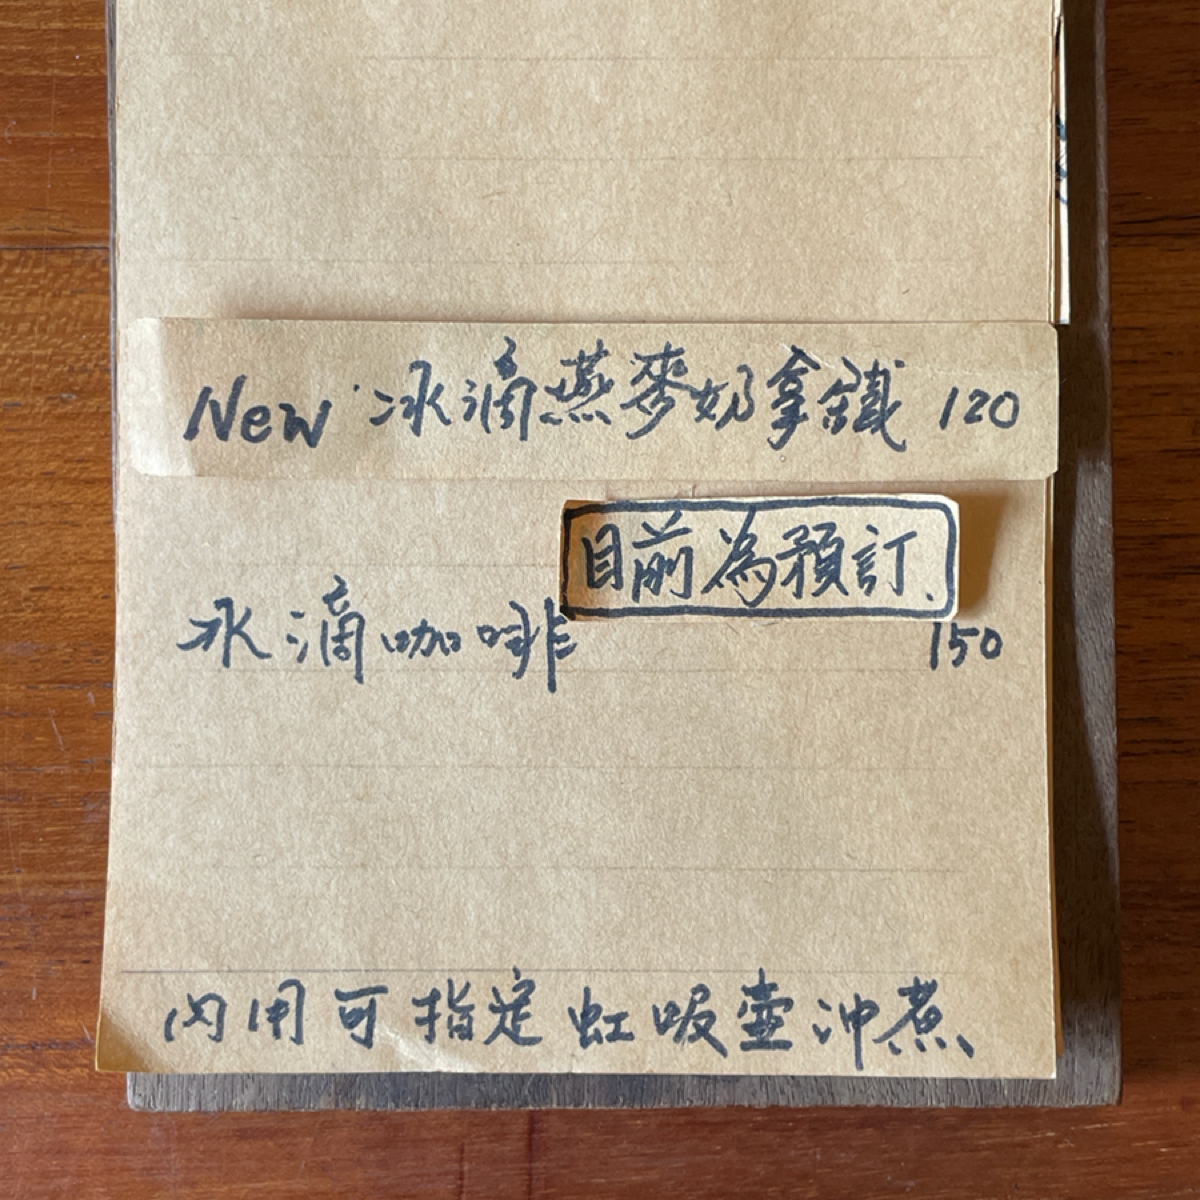 New 冰滴燕麥奶拿鐵 120
目前為預訂.
冰滴咖啡 150
內用可指定虹吸壺沖煮、